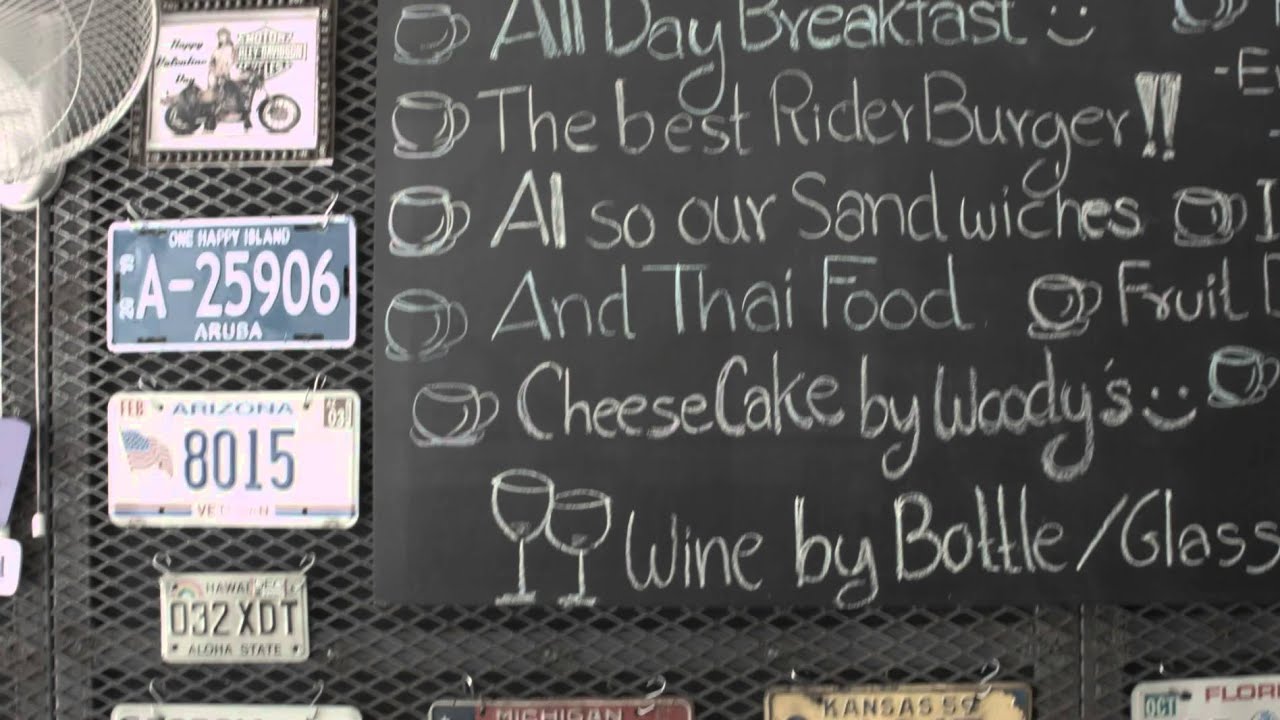 Happy
Valentine
Day
MOTOR
HARLEY-DAVIDSON
CYCLES
ONE HAPPY ISLAND
A-25906
ARUBA
FEB
ARIZONA
03
8015
VETERAN
HAWAII
032 XDT
ALOHA STATE
MICHIGAN
KANSAS 59
OCT
FLORI
All Day Breakfast
The best Rider Burger!!
Al so our Sandwiches
And Thai Food
Fruit
CheeseCake by Woody's
Wine by Bottle/Glass